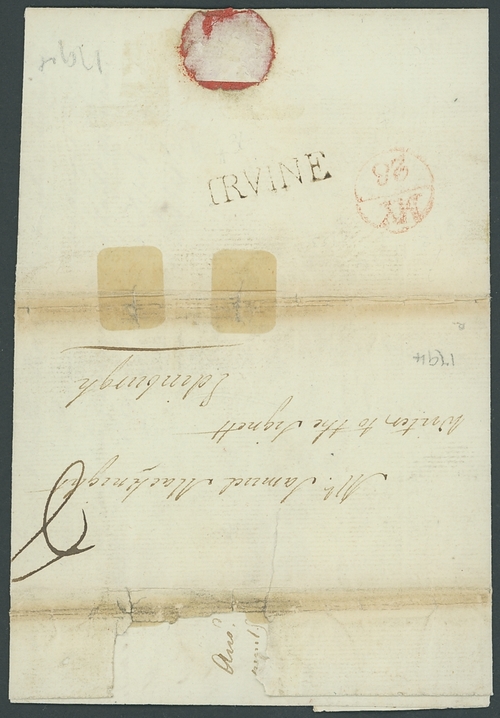 1794
IRVINE
MY
28
1794
Mr. Samuel Macknight
Writer to the Signett
Edinburgh
Ans.